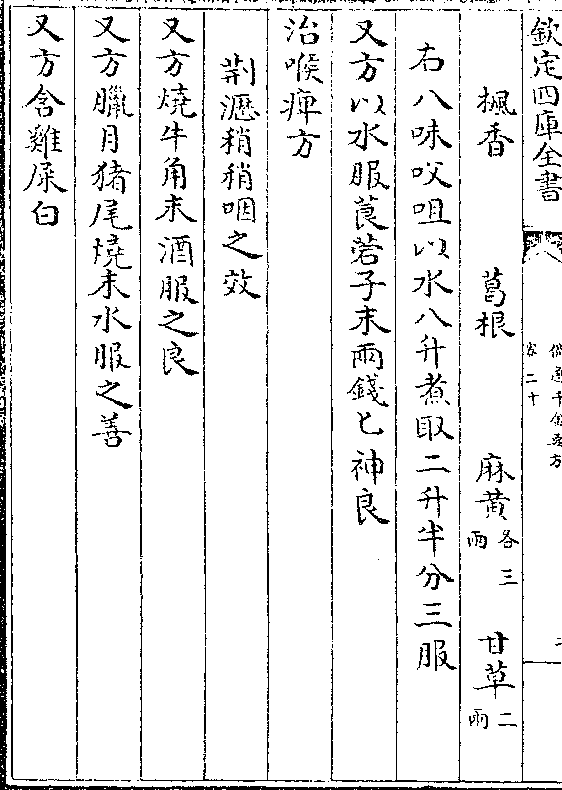 欽定四庫全書
備急千金要方
卷二十
楓香 葛根 麻黄各三兩 甘草二兩
右八味㕮咀以水八升煮取二升半分三服
又方以水服莨菪子末兩錢匕神良
治喉痺方
荆瀝稍稍咽之效
又方燒牛角末酒服之良
又方臘月猪尾燒末水服之善
又方含雞屎白